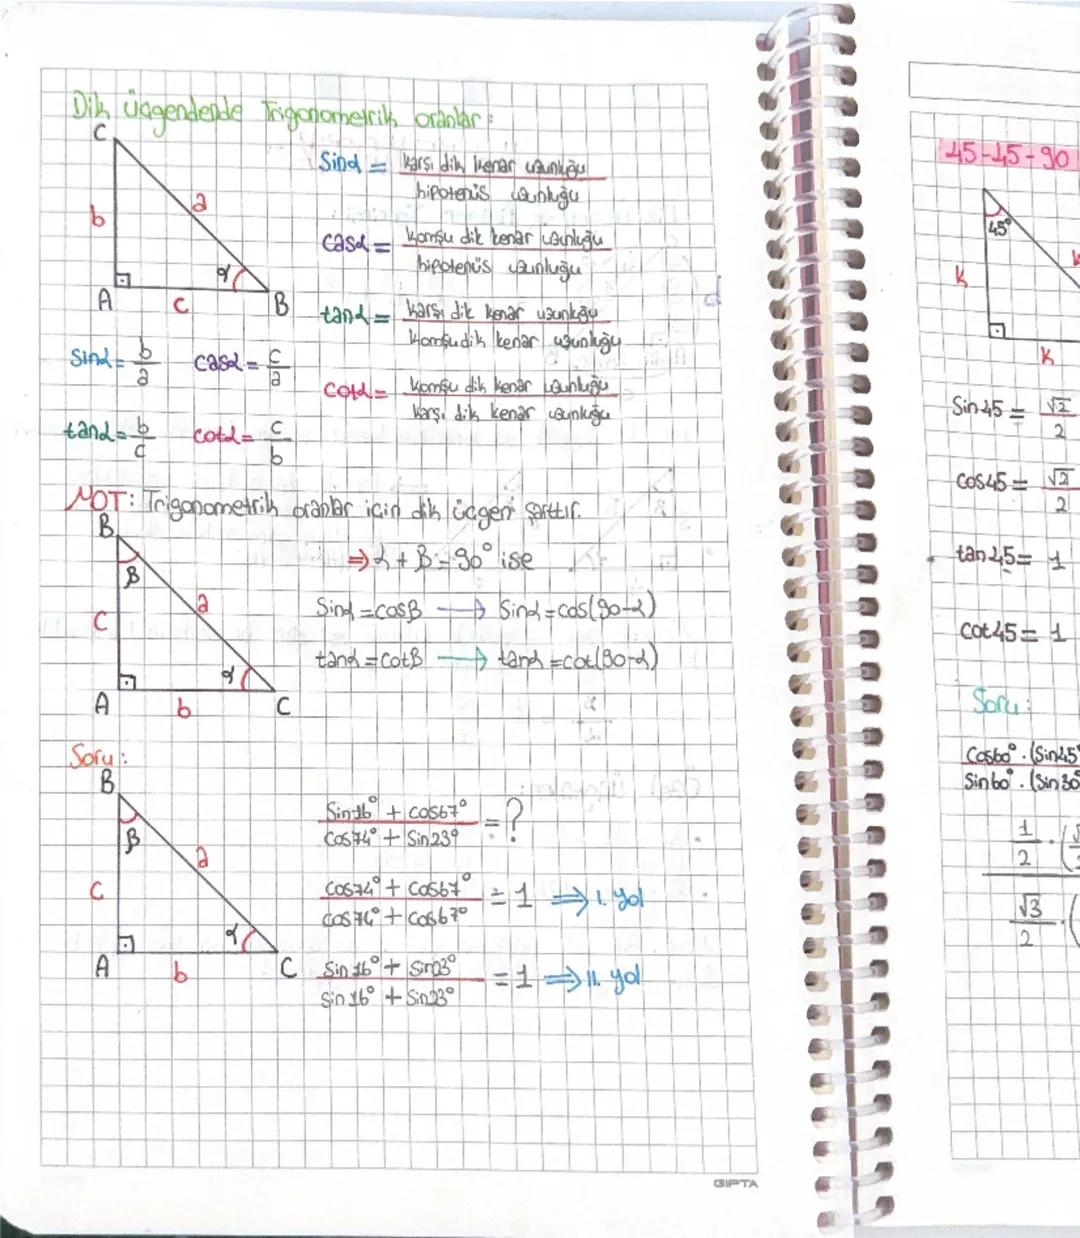 Dik üçgendende Trigonometrik oranlar:
C
b
a
α
A
c
B
Sinα = karşı dik kenar uzunluğu
hipotenüs uzunluğu
casα = komşu dik kenar uzunluğu
hipotenüs uzunluğu
tanα = karşı dik kenar uzunluğu
komşu dik kenar uzunluğu
Cotα = komşu dik kenar uzunluğu
karşı dik kenar uzunluğu
sinα = b/a casα = c/a
tanα = b/c cotα = c/b
NOT: Trigonometrik oranlar için dik üçgen şarttır.
B
β
c
a
α
A
b
C
⇒ α + B = 90° ise
Sinα = cosβ → Sinα = cos(90-α)
tanα = cotβ → tanα = cot(90-α)
Soru:
B
β
c
a
α
A
b
C
Sin16° + cos67° / cos74° + Sin23° = ?
cos74° + cos67° / cos74° + cos67° = 1 ⇒ I. yol
Sin16° + Sin23° / sin16° + Sin23° = 1 ⇒ II. yol
GIPTA
45-45-90
45°
k
k
k
Sin45 = √2/2
cos45 = √2/2
tan45 = 1
cot45 = 1
Soru:
Cos60° . (Sin45°
Sin60° . (Sin30°
1/2 . (
√3/2 . (